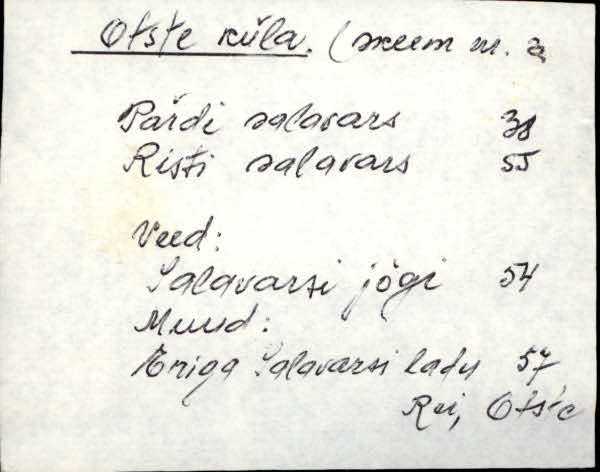 Otste küla. (skeem nr. 2
Pärdi salavars 38
Risti salavars 55
Veed:
Salavarsi jõgi 54
Muud:
Salavarsi ladu 57
Rei, Otste